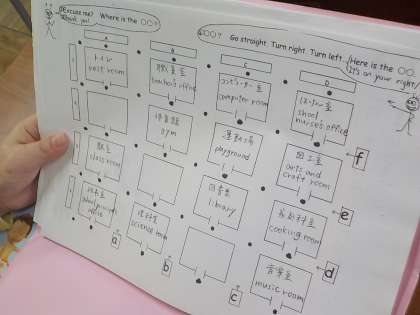 Excuse me? Where is the ○○?
Thank you!
○○? Go straight. Turn right. Turn left.
Here is the ○○.
It's on your right/
A
B
C
D
トイレ
rest room
職員室
teacher's office
コンピューター室
computer room
ほけん室
school nurse's office
体育館
gym
運動場
playground
図工室
arts and craft room
教室
class room
図書室
library
家庭科室
cooking room
校長室
理科室
science room
音楽室
music room
a
b
c
d
e
f